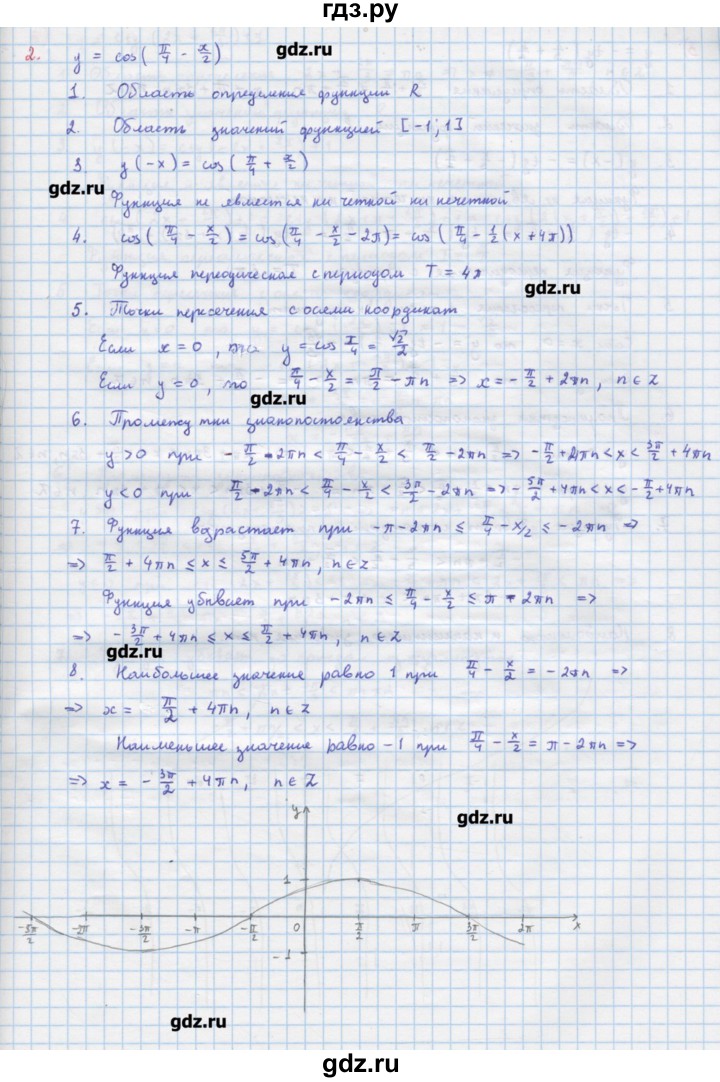 гдз.ру
2. y = cos(π/4 − x/2)
gdz.ru
1. Область определения функции R
2. Область значений функцией [−1; 1]
3. y(−x) = cos(π/4 + x/2)
gdz.ru
Функция не является ни четной ни нечетной
4. cos(π/4 − x/2) = cos(π/4 − x/2 − 2π) = cos(π/4 − 1/2(x + 4π))
Функция периодическая с периодом T = 4π
gdz.ru
5. Точки пересечения с осями координат
Если x = 0, то y = cos π/4 = √2/2
Если y = 0, то π/4 − x/2 = π/2 − πn => x = −π/2 + 2πn, n ∈ Z
gdz.ru
6. Промежутки знакопостоянства
y > 0 при −π/2 − 2πn < π/4 − x/2 < π/2 − 2πn => −π/2 + 4πn < x < 3π/2 + 4πn
y < 0 при π/2 − 2πn < π/4 − x/2 < 3π/2 − 2πn => −5π/2 + 4πn < x < −π/2 + 4πn
7. Функция возрастает при −π − 2πn ≤ π/4 − x/2 ≤ −2πn =>
=> π/2 + 4πn ≤ x ≤ 5π/2 + 4πn, n ∈ Z
Функция убывает при −2πn ≤ π/4 − x/2 ≤ π − 2πn =>
=> −3π/2 + 4πn ≤ x ≤ π/2 + 4πn, n ∈ Z
gdz.ru
8. Наибольшее значение равно 1 при π/4 − x/2 = −2πn =>
=> x = π/2 + 4πn, n ∈ Z
Наименьшее значение равно −1 при π/4 − x/2 = π − 2πn =>
=> x = −3π/2 + 4πn, n ∈ Z
gdz.ru
y
1
−5π/2 −2π −3π/2 −π −π/2 0 π/2 π 3π/2 2π x
−1
gdz.ru
gdz.ru